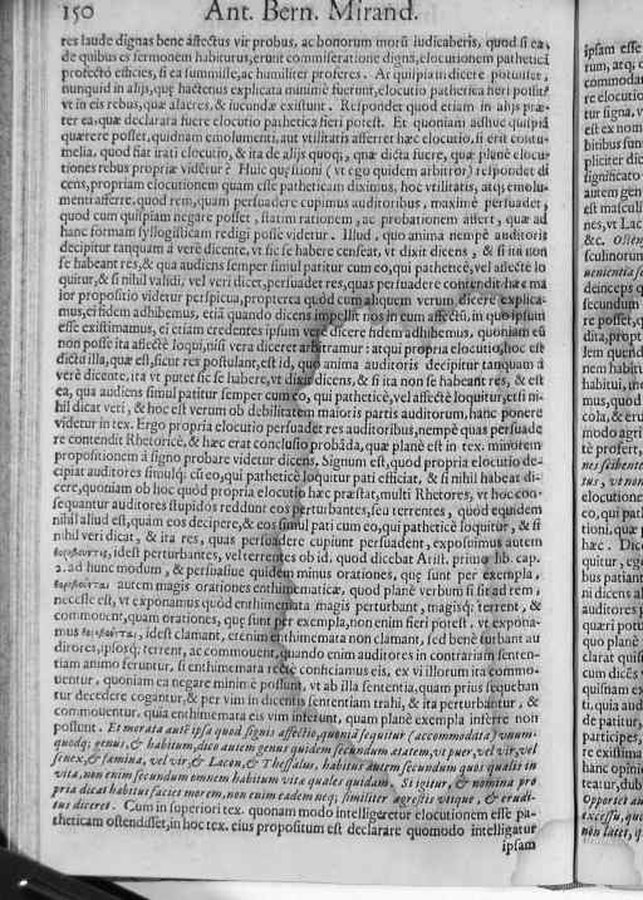 150 Ant. Bern. Mirand.
res laude dignas bene affectus vir probus, ac bonorum morũ iudicaberis, quod si ea,
de quibus es sermonem habiturus, erunt commiseratione digna, elocutionem patheticã
profecto efficies, si ea summisse, ac humiliter proferes. At quispiam dicere potuisset,
nunquid in alijs, quę hactenus explicata minime fuerunt, elocutio pathetica fieri possit?
vt in eis rebus, quæ alacres, & iucundæ existunt. Respondet quod etiam in alijs præ-
ter ea, quæ declarata fuere elocutio pathetica fieri potest. Et quoniam adhuc quispiã
quærere posset, quidnam emolumenti, aut vtilitatis afferret hæc elocutio, si erit contu-
melia, quod fiat irati elocutio, & ita de alijs quoq;, quæ dicta fuere, quæ planè elocu-
tiones rebus propriæ vidẽtur? Huic quęstioni (vt ego quidem arbitror) respondet di
cens, propriam elocutionem quam esse patheticam diximus, hoc vtilitatis, atq; emolu-
menti afferre, quod rem, quam persuadere cupimus auditoribus, maximè persuadet,
quod cum quispiam negare posset, statim rationem, ac probationem affert, quæ ad
hanc formam syllogisticam redigi posse videtur. Illud, quo anima nempè auditoris
decipitur tanquam à verè dicente, vt sic se habere censeat, vt dixit dicens, & si ita non
se habeant res, & qua audiens semper simul patitur cum eo, qui patheticè, vel affectè lo
quitur, & si nihil validi, vel veri dicet, persuadet res, quas persuadere contendit. hæc ma
ior propositio videtur perspicua, propterea quòd cum aliquem verum dicere explica-
mus, ei fidem adhibemus, etiã quando dicens impellit nos in eum affectũ, in quo ipsum
esse existimamus, ei etiam credentes ipsum verè dicere fidem adhibemus, quoniam eũ
non posse ita affectè loqui, nisi vera diceret arbitramur: atqui propria elocutio, hoc est
dicta illa, quæ est, sicut res postulant, est id, quo anima auditoris decipitur tanquam à
verè dicente, ita vt putet sic se habere, vt dixit dicens, & si ita non se habeant res, & est
ea, qua audiens simul patitur semper cum eo, qui patheticè, vel affectè loquitur, etsi ni-
hil dicat veri, & hoc est verum ob debilitatem maioris partis auditorum, hanc ponere
videtur in tex. Ergo propria elocutio persuadet res auditoribus, nempè quas persuade
re contendit Rhetoricè, & hæc erat conclusio probãda, quæ planè est in tex. minorem
propositionem à signo probare videtur dicens. Signum est, quod propria elocutio de-
cipiat auditores simulq; cũ eo, qui patheticè loquitur pati efficiat, & si nihil habeat di-
cere, quoniam ob hoc quòd propria elocutio hæc præstat, multi Rhetores, vt hoc con-
sequantur auditores stupidos reddunt eos perturbantes, seu terrentes, quòd equidem
nihil aliud est, quàm eos decipere, & eos simul pati cum eo, qui patheticè loquitur, & si
nihil veri dicat, & ita res, quas persuadere cupiunt persuadent, exposuimus autem
θορυβοῦντες, idest perturbantes, vel terrentes ob id, quod dicebat Arist. primo lib. cap.
2. ad hunc modum, & persuasiue quidem minus orationes, quę sunt per exempla,
θορυβοῦνται autem magis orationes enthimematicæ, quod planè verbum si sit ad rem,
necesse est, vt exponamus quòd enthimemata magis perturbant, magisq; terrent, &
commouent, quam orationes, quę sunt per exempla, non enim fieri potest, vt expona-
mus θορυβοῦνται, idest clamant, etenim enthimemata non clamant, sed bene turbant au
ditores, ipsosq; terrent, ac commouent, quando enim auditores in contrariam senten-
tiam animo feruntur, si enthimemata rectè conficiamus eis, ex vi illorum ita commo-
uentur, quoniam ea negare minimè possunt, vt ab illa sententia, quam prius sequeban
tur decedere cogantur, & per vim in dicentis sententiam trahi, & ita perturbantur, &
commouentur, quia enthimemata eis vim inferunt, quam planè exempla inferre non
possunt. Et morata autẽ ipsa quod signis affectio, quonia sequitur (accommodata) vnum-
quodq; genus, & habitum, dico autem genus quidem secundum ætatem, vt puer, vel vir, vel
senex, & fæmina, vel vir, & Lacon, & Thessalus. habitus autem secundum quos qualis in
vita, non enim secundum omnem habitum vitæ quales quidam. Si igitur, & nomina pro
pria dicat habitus faciet morem, non enim eadem neq; similiter agrestis vtique, & erudi-
tus diceret. Cum in superiori tex. quonam modo intelligeretur elocutionem esse pa-
theticam ostendisset, in hoc tex. eius propositum est declarare quomodo intelligatur
ipsam